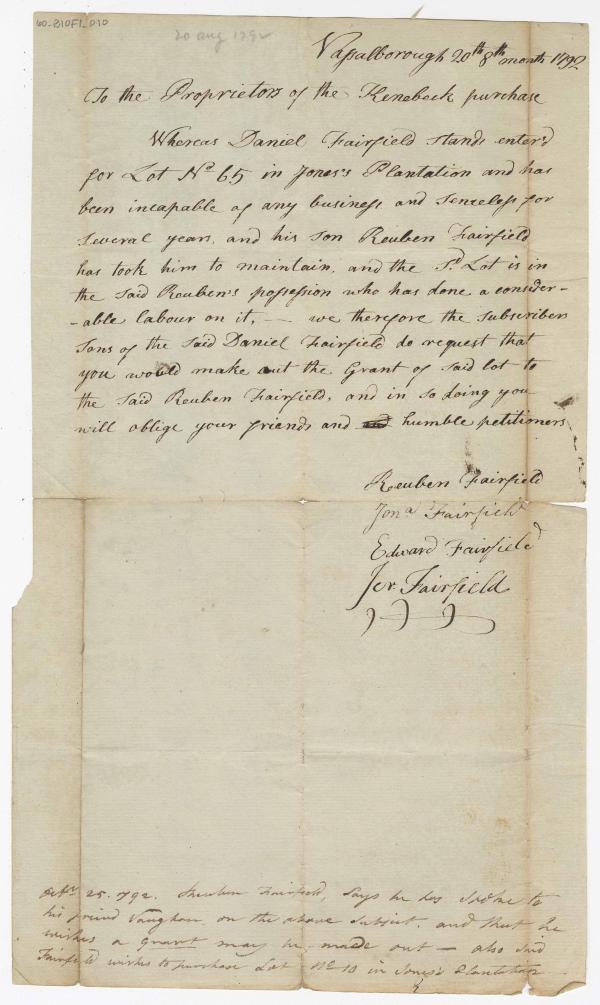 60-B10F1-010
20 aug 1792
Vassalborough 20th 8th month 1792
To the Proprietors of the Kenebeck purchase
Whereas Daniel Fairfield stands enter'd
for Lot No 65 in Jones's Plantation and has
been incapable of any business and Senceless for
Several years, and his Son Reuben Fairfield
has took him to maintain, and the Sd. Lot is in
the Said Reuben's possession who has done a consider-
-able labour on it, — we therefore the subscribers
Sons of the Said Daniel Fairfield do request that
you would make out the Grant of Said lot to
the Said Reuben Fairfield, and in so doing you
will oblige your friends and and humble petitioners
Reuben Fairfield
Jona Fairfield
Edward Fairfield
Jer. Fairfield
25. 792. Reuben Fairfield, Says he has Spoke to
his friend Vaughan on the above Subject, and that he
wishes a Grant may be made out — also Said
Fairfield wishes to purchase Lot No 10 in Jones's Plantation